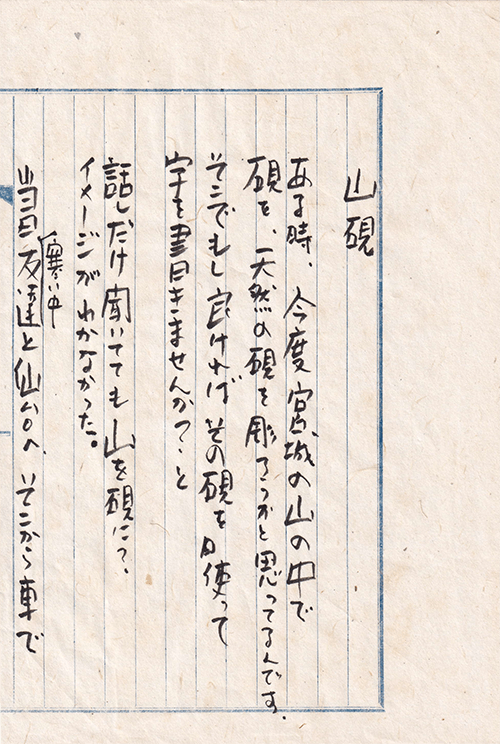 山硯
ある時、今度宮城の山の中で
硯を、天然の硯を彫ろうかと思ってるんです。
そこでもし良ければその硯を使って
字を書きませんか?と
話しだけ聞いてても山を硯に?
イメージがわかなかった。
当日寒い中友達と仙台へ、そこから車で